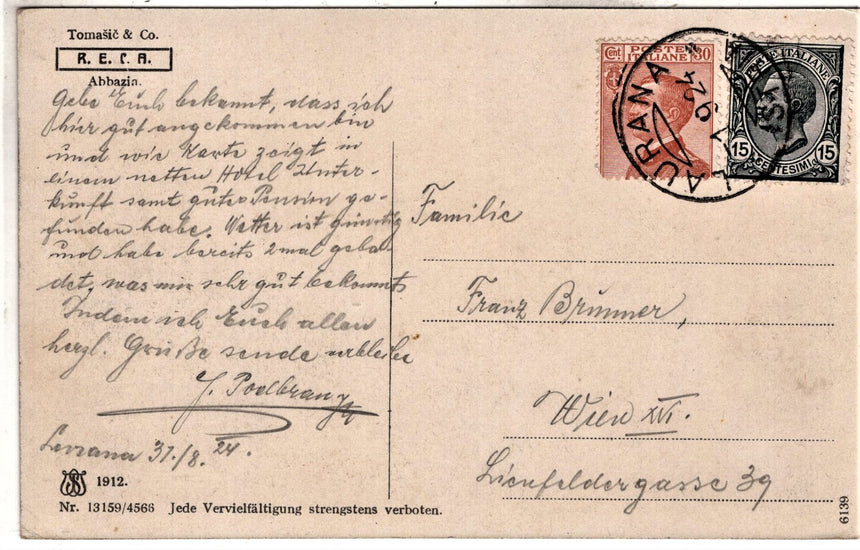 Tomašič & Co.
R. E. C. A.
Abbazia.
Gebe Euch bekannt, dass ich
hier gut angekommen bin
und wie Karte zeigt in
einem netten Hotel Unter-
kunft samt guter Pension ge-
funden habe. Wetter ist günstig
und habe bereits 2mal geba-
det, was mir sehr gut bekommt.
Indem ich Euch allen
herzl. Grüße sende verbleibe
J.
Lovrana 31./8. 24.
1912.
Nr. 13159/4566 Jede Vervielfältigung strengstens verboten.
Cent POSTE ITALIANE 30
LAURANA
9 24
POSTE ITALIANE
15 CENTESIMI 15
Familie
Franz Brunner,
Wien XVI.
Lienfeldergasse 39
6139